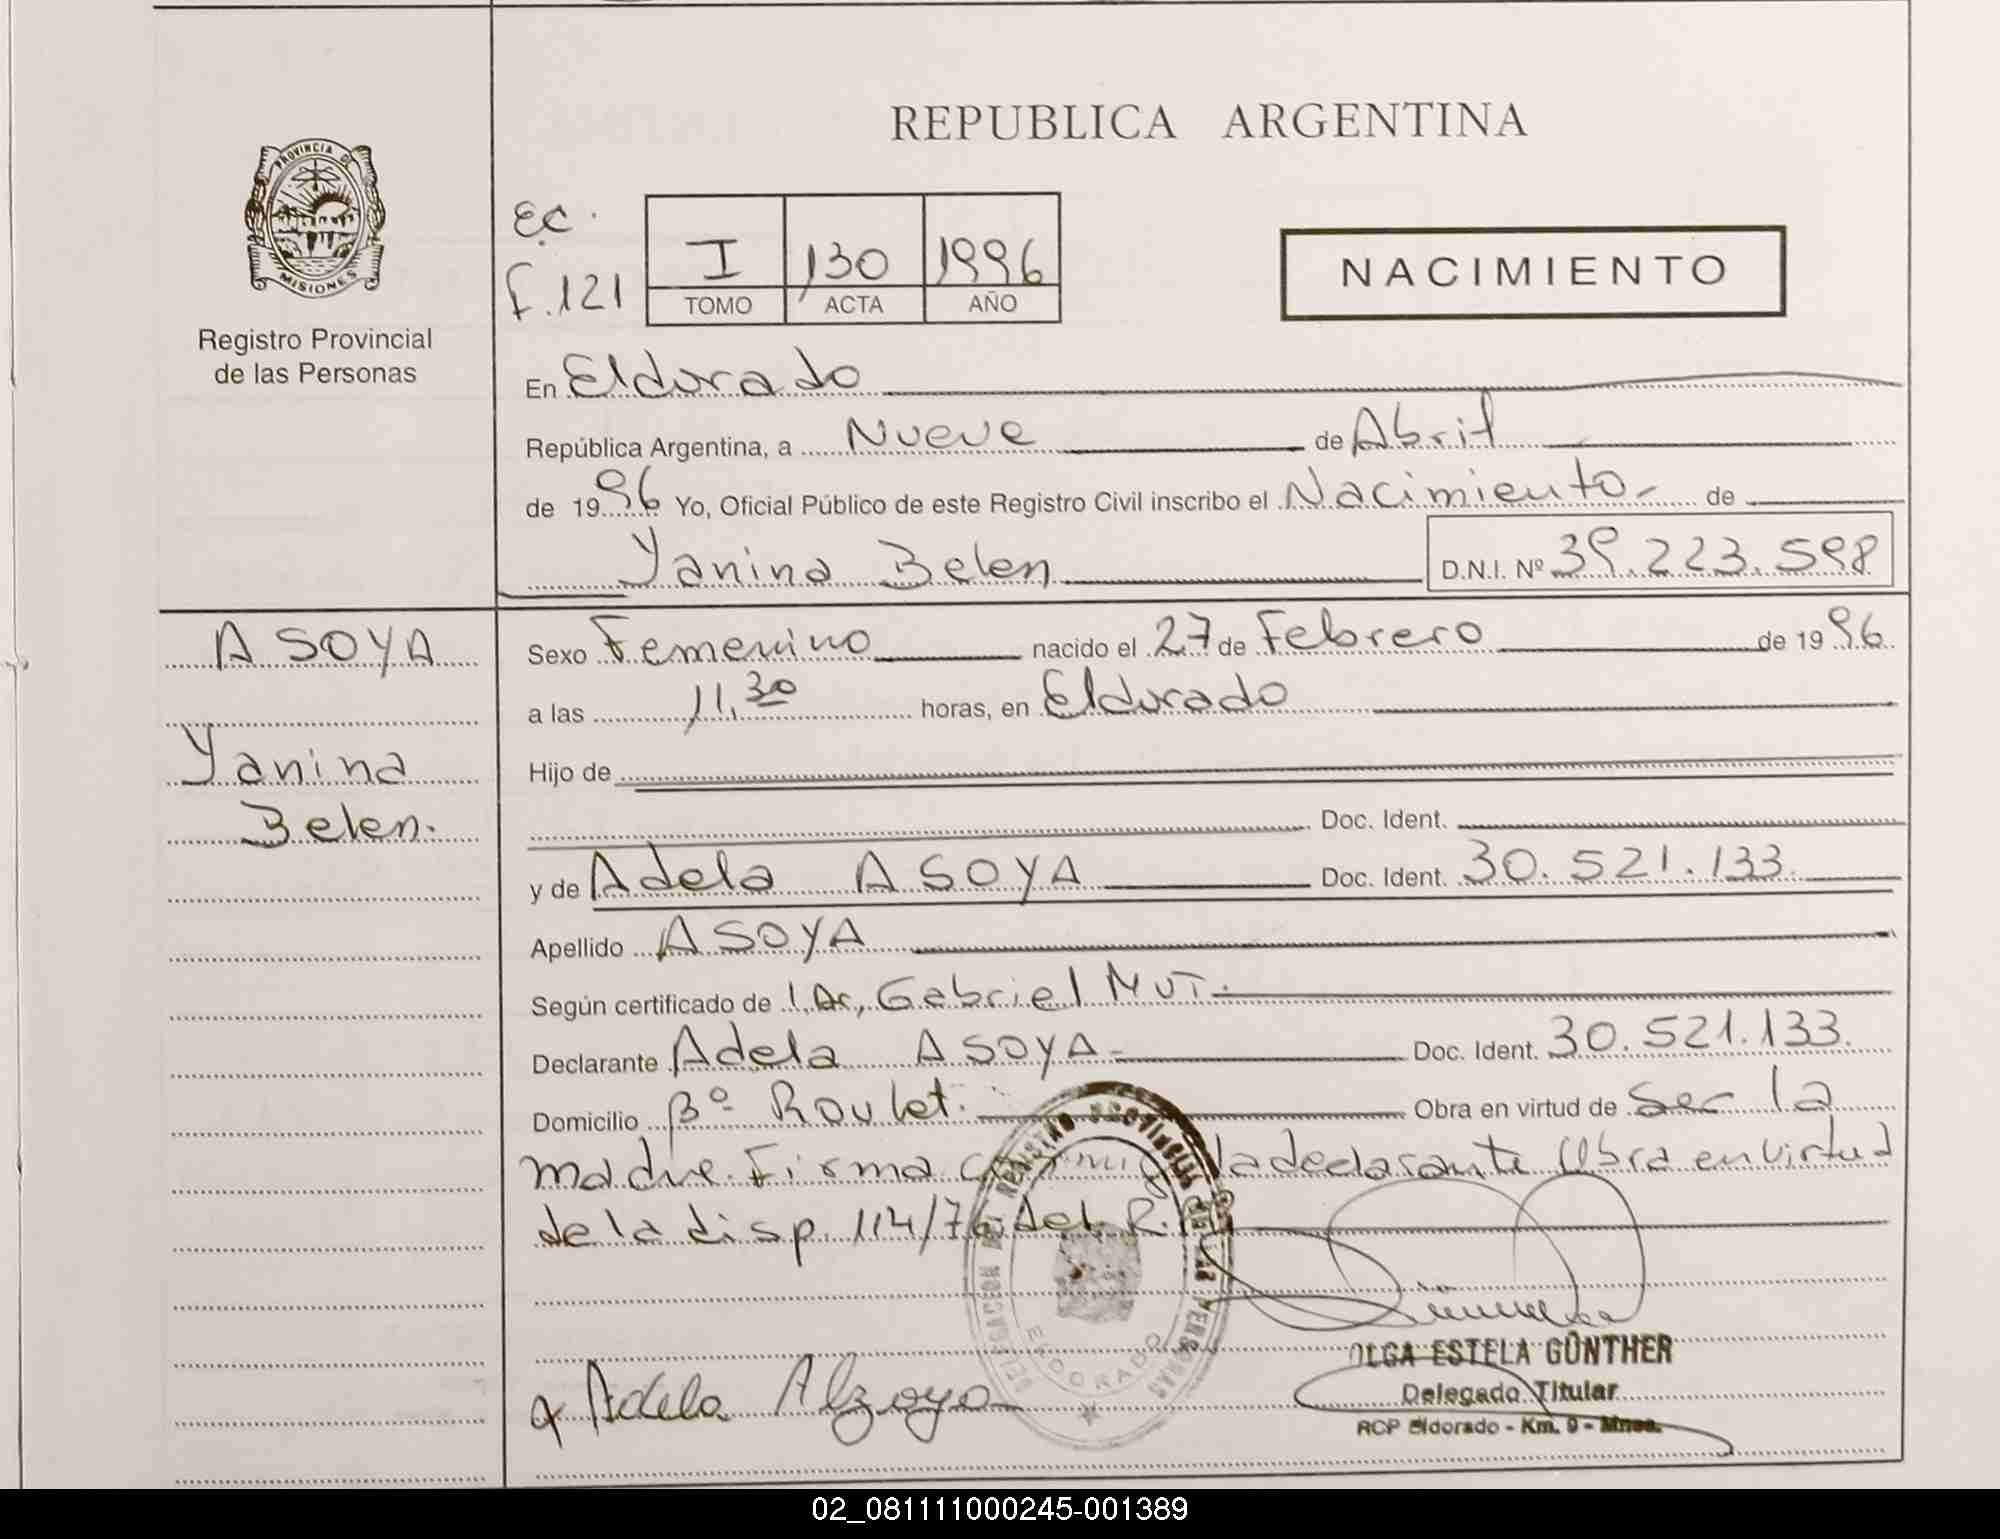 REPUBLICA ARGENTINA
PROVINCIA DE
MISIONES
Registro Provincial
de las Personas
E.C.
F. 121
I 130 1996
TOMO ACTA AÑO
NACIMIENTO
En Eldorado
República Argentina, a Nueve de Abril
de 1996 Yo, Oficial Público de este Registro Civil inscribo el Nacimiento- de
Yanina Belen D.N.I. Nº 39.223.598
ASOYA
Yanina
Belen.
Sexo Femenino nacido el 27 de Febrero de 1996
a las 11,30 horas, en Eldorado
Hijo de
Doc. Ident.
y de Adela ASOYA Doc. Ident. 30.521.133.
Apellido ASOYA
Según certificado de Dr, Gabriel MUT.
Declarante Adela ASOYA- Doc. Ident. 30.521.133.
Domicilio Bº Roulet. Obra en virtud de Ser la
madre. Firma la declarante Obra en virtud
de la disp. 114/76 del R.
DELEGACION DEL REGISTRO PROVINCIAL DE LAS PERSONAS
ELDORADO
OLGA ESTELA GÜNTHER
Delegado Titular
RCP Eldorado - Km. 9 - Mnes.
x Adela Alzoyo
02_081111000245-001389